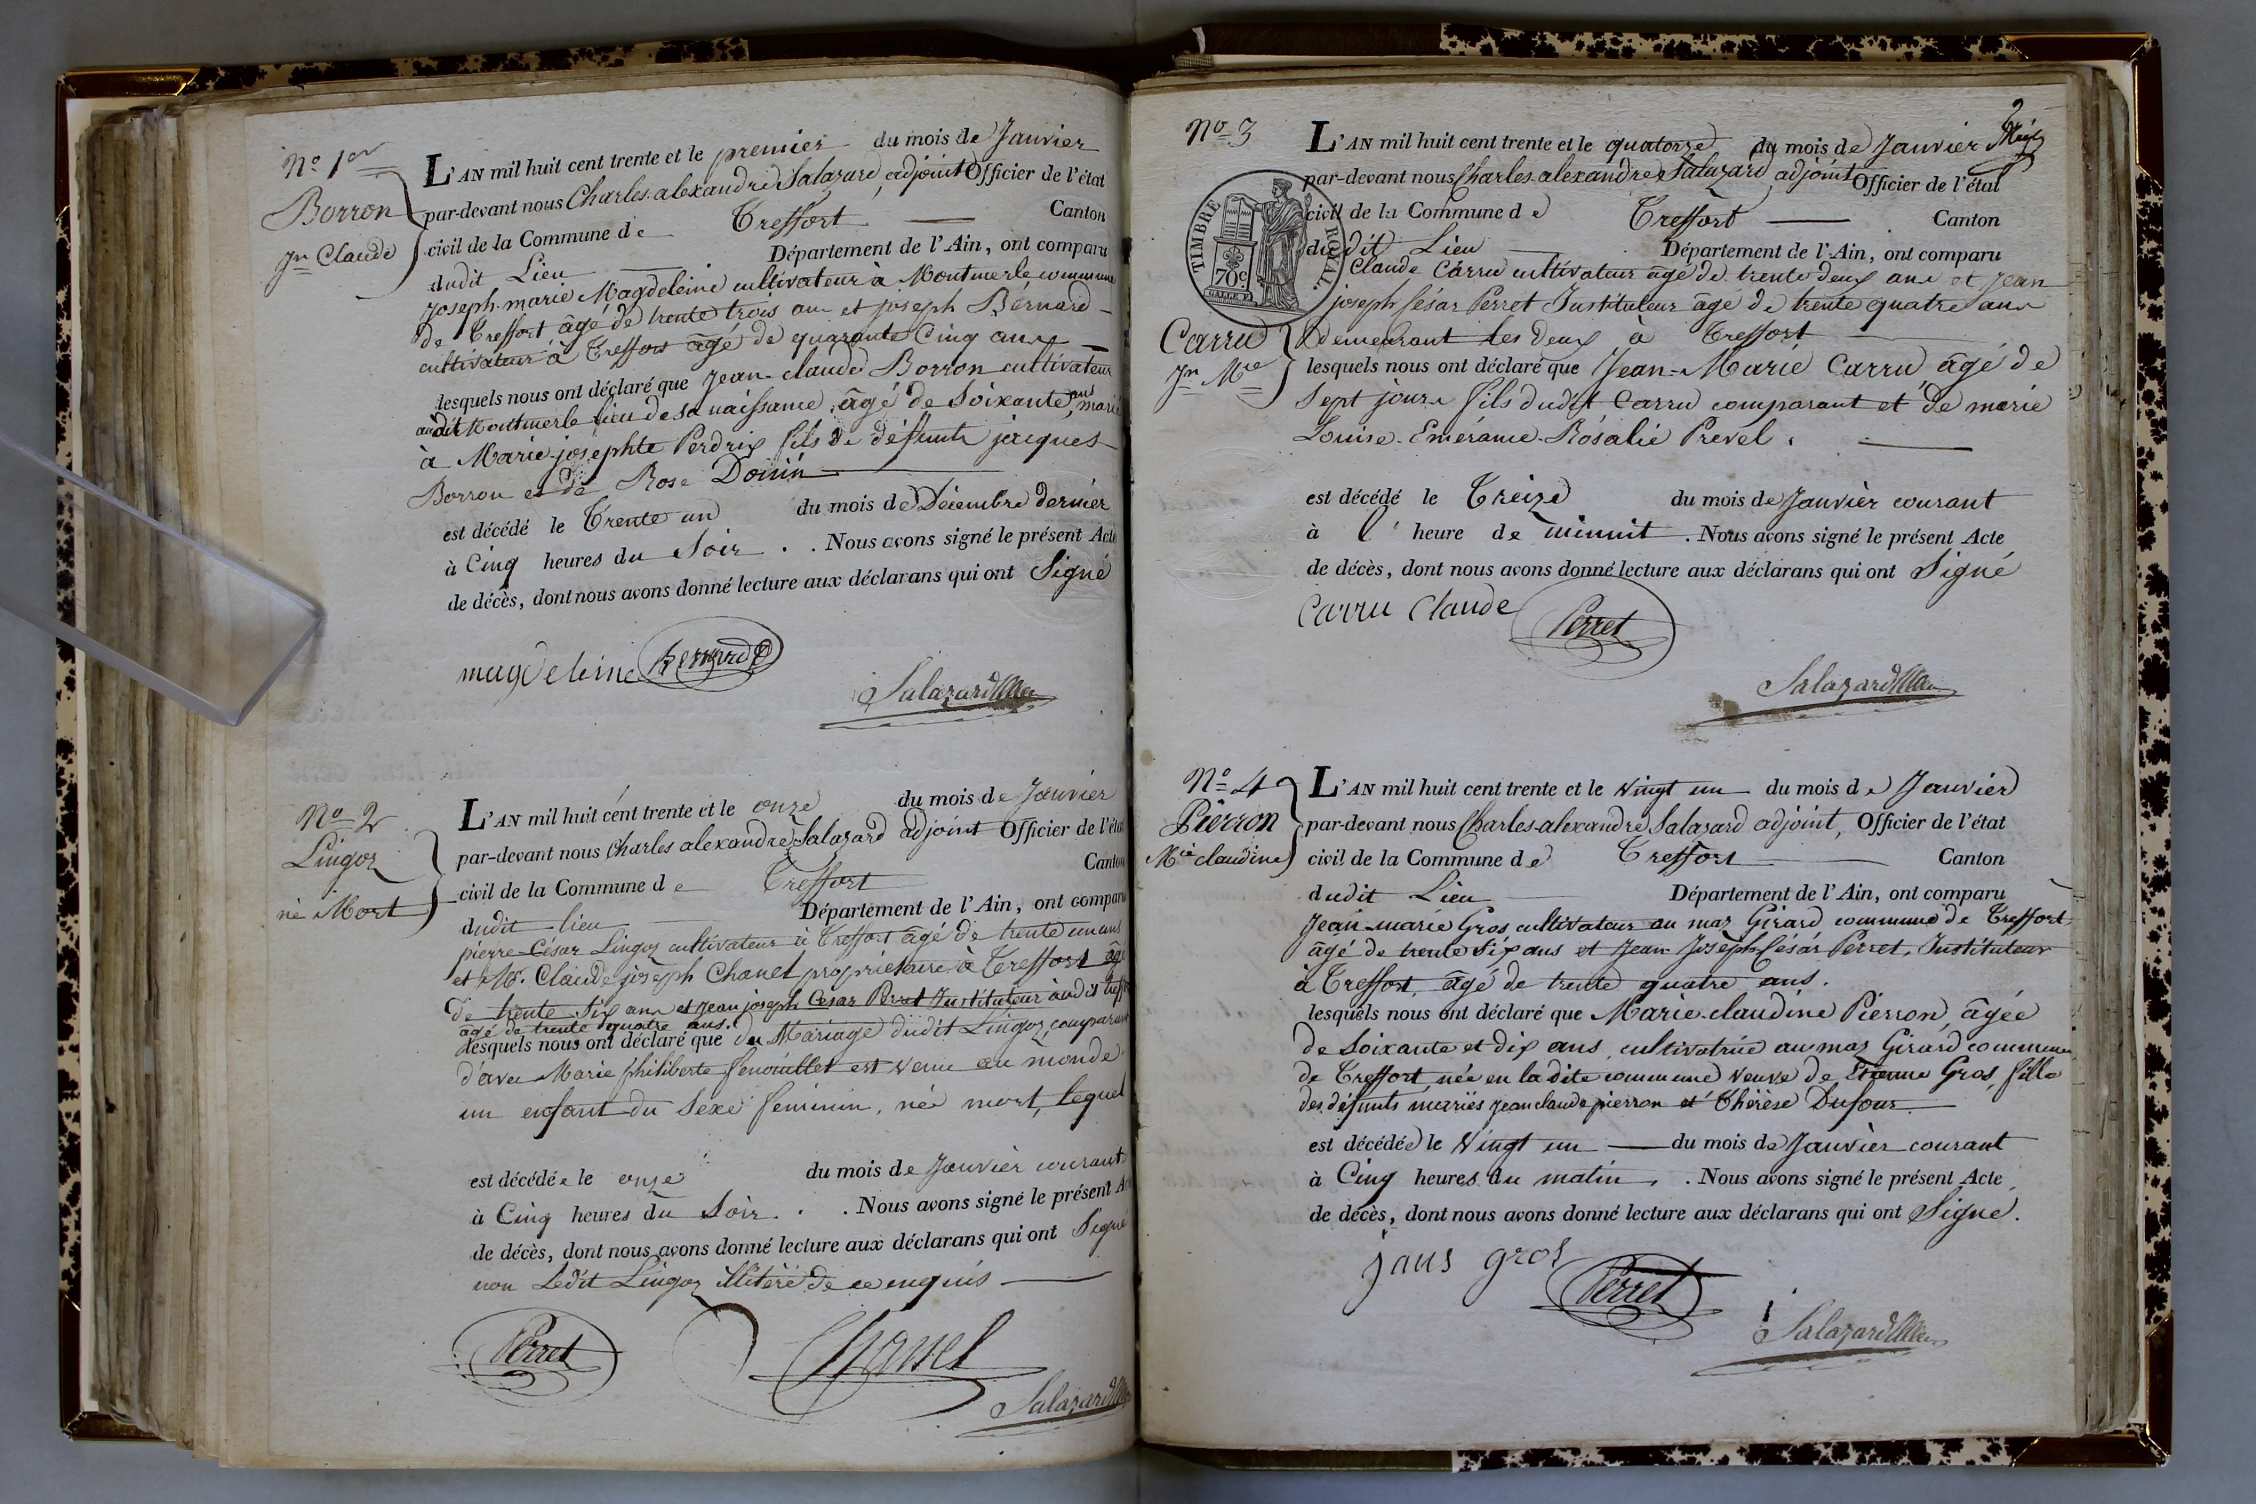 No 1er
Borron
Jn Claude
L'AN mil huit cent trente et le premier du mois de Janvier
par-devant nous Charles-alexandre Salazard, adjoint Officier de l'état
civil de la Commune de Treffort Canton
dudit Lieu Département de l'Ain, ont comparu
joseph-marie Magdeleine cultivateur à Montmerle commune
de Treffort âgé de trente trois ans et joseph Bernard
cultivateur à Treffort âgé de quarante Cinq ans
lesquels nous ont déclaré que Jean-claude Borron cultivateur
audit Montmerle lieu de sa naissance, âgé de Soixante ans, marié
à Marie-josephte Perdrix fils de défunts jacques
Borron et de Rose Doinin
est décédé le Trente un du mois de Décembre dernier
à Cinq heures du Soir . . Nous avons signé le présent Acte
de décès, dont nous avons donné lecture aux déclarans qui ont Signé
magdeleine Bernard
Salazard
No 2
Lingoz
né Mort
L'AN mil huit cent trente et le onze du mois de Janvier
par-devant nous Charles alexandre Salazard adjoint Officier de l'état
civil de la Commune de Treffort Canton
dudit lieu Département de l'Ain, ont comparu
pierre-César Lingoz cultivateur à Treffort âgé de trente un ans
et Mr. Claude joseph Chanel propriétaire à Treffort âgé
de trente Six ans et jean joseph César Perret Instituteur audit Treffort
âgé de trente quatre ans.
lesquels nous ont déclaré que du Mariage dudit Lingoz, comparant
d'avec Marie philiberte fenouillet est venu au monde
un enfant du Sexe féminin, né mort, lequel
est décédée le onze du mois de Janvier courant
à Cinq heures du Soir . . Nous avons signé le présent Acte
de décès, dont nous avons donné lecture aux déclarans qui ont Signé
non Ledit Lingoz illitéré de ce enquis
Perret Chanel
Salazard
2
No 3
L'AN mil huit cent trente et le quatorze du mois de Janvier
par-devant nous Charles-alexandre Salazard adjoint Officier de l'état
civil de la Commune de Treffort Canton
dudit Lieu Département de l'Ain, ont comparu
TIMBRE ROYAL.
70c.
Claude Carru cultivateur âgé de trente deux ans et Jean
joseph César Perret Instituteur âgé de trente quatre ans
Carru
Jn Mie
demeurant les deux à Treffort
lesquels nous ont déclaré que Jean-Marie Carru âgé de
Sept jours fils dudit Carru comparant et de marie
Louise-Emérance-Rosalie Prevel.
est décédé le Treize du mois de Janvier courant
à l' heure de minuit . Nous avons signé le présent Acte
de décès, dont nous avons donné lecture aux déclarans qui ont Signé
Carru Claude Perret
Salazard
No 4
Pierron
Mie claudine
L'AN mil huit cent trente et le vingt un du mois de Janvier
par-devant nous Charles-alexandre Salazard adjoint, Officier de l'état
civil de la Commune de Treffort Canton
dudit Lieu Département de l'Ain, ont comparu
Jean-marie Gros cultivateur au mas Girard commune de Treffort
âgé de trente Six ans et Jean Joseph César Perret, Instituteur
à Treffort, âgé de trente quatre ans.
lesquels nous ont déclaré que Marie-claudine Pierron, âgée
de Soixante et dix ans, cultivatrice au mas Girard commune
de Treffort, née en la dite commune veuve de Etienne Gros, fille
des défunts mariés jean claude pierron et Thérèse Dufour
est décédée le vingt un du mois de Janvier courant
à Cinq heures du matin . . Nous avons signé le présent Acte
de décès, dont nous avons donné lecture aux déclarans qui ont Signé.
jans gros Perret
Salazard